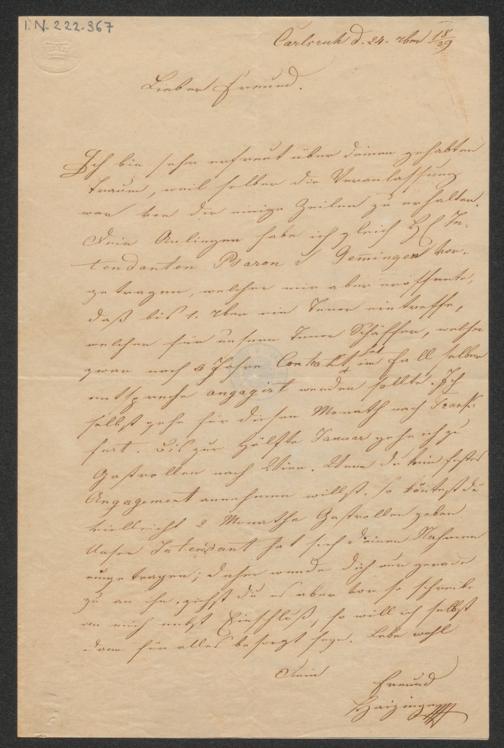 I.N. 222.367
Carlsruh d. 24. 7ber 18/29
Lieber Freund.
Ich bin sehr erfreut über deinen gehabten
Traum, weil selber die Veranlassung
war von dir einige Zeilen zu erhalten.
Dein Anliegen habe ich gleich H. In-
tendanten Baron v Gemingen vor-
getragen, welcher mir aber eröffnete,
daß bis 1. 9ber ein Tenor eintreffe,
welcher für unsern Tenor Schäffer, welcher
zwar noch 6 Jahre Contrakt hat im Fall selber
entspreche angagirt werden sollte. Ich
selbst gehe für diesen Monath nach Frank-
furt. Bis zur Hälfte Januar gehe ich zu
Gastrollen nach Wien. Wenn du kein festes
Angagement annehmen willst, so köntest du
vielleicht 2 Monathe Gastrollen geben
Unser Intendant hat sich deinen Nahmen
eingetragen; daher wende dich nur gerade
zu an ihn, gehst du es aber vor so schreibe
an mich nebst Einschluß, so will ich selbst
dann für alles besorgt seyn. Lebe wohl
Dein
Freund
Haizinger